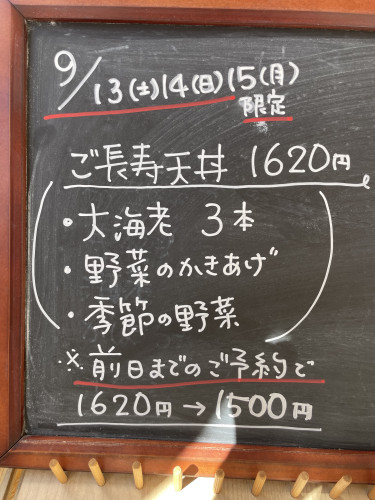 9/13(土)14(日)15(月)
限定
ご長寿天丼 1620円
・大海老 3本
・野菜のかきあげ
・季節の野菜
※前日までのご予約で
1620円→1500円